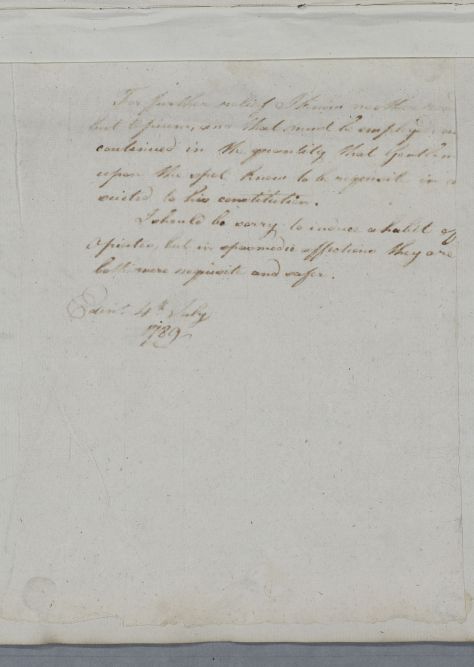 For further relief I know nothing
but Opium, and that must be employed
continued in the quantity that Gentlemen
upon the spot know to be requisite
suited to his constitution.
I should be sorry to induce a habit of
Opiates, but in spasmodic affections they are
both more requisite and safer.
Edinr. 4th July
1789